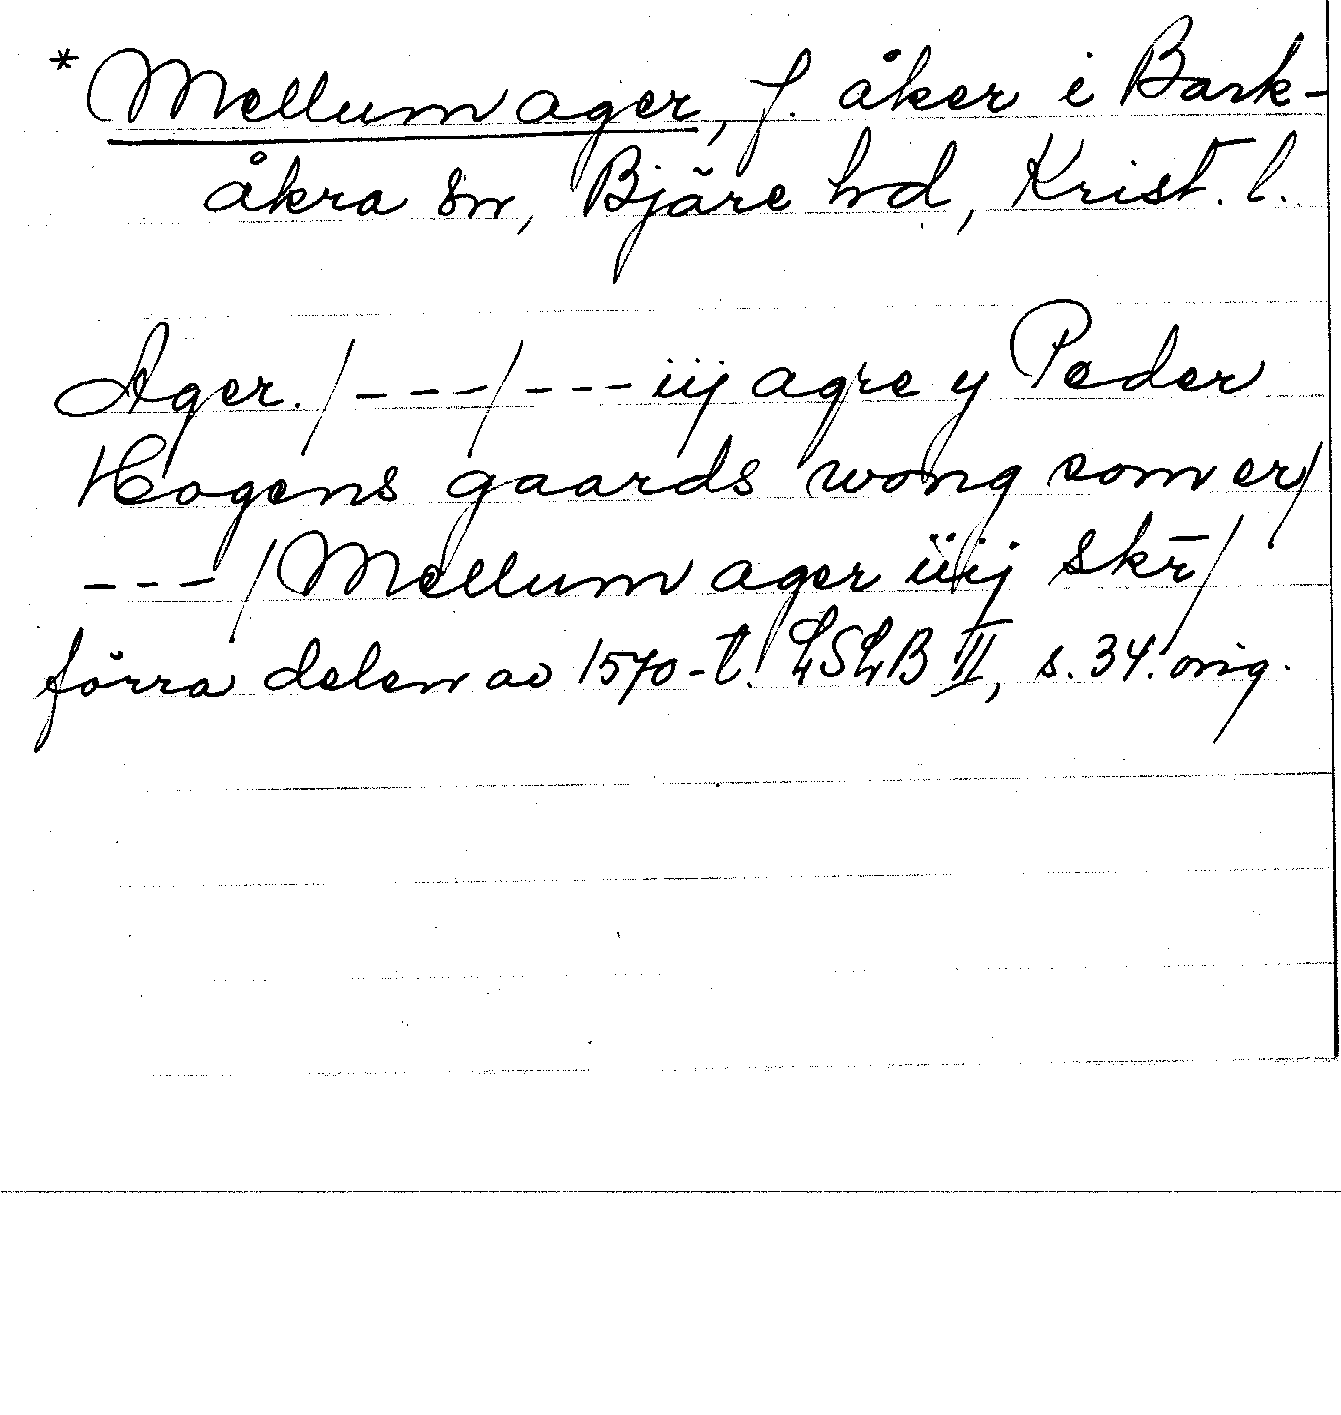 *Mellum ager, f. åker i Bark-
åkra sn, Bjäre hd, Krist. l.
Ager. / - - - / - - - iij agre y Peder
Hogens gaards wong som er /
- - - / Mellum ager iiij skr̄ /
förra delen av 1570-t. LSLB III, s. 34. orig.